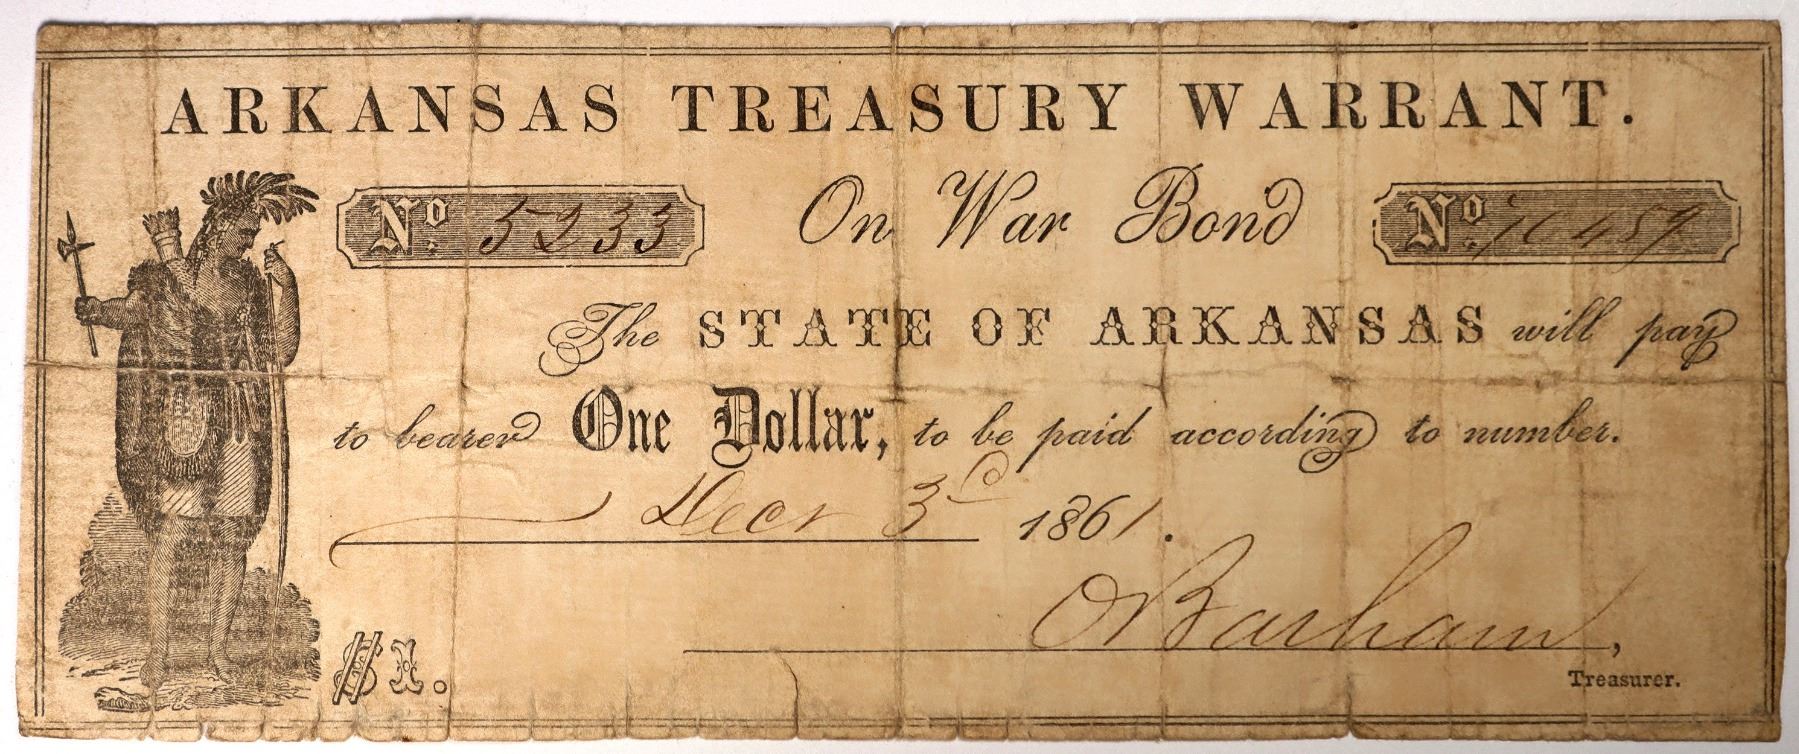 ARKANSAS TREASURY WARRANT.
No. 5233 On War Bond No. 10459
The STATE OF ARKANSAS will pay
to bearer One Dollar, to be paid according to number.
Decr 3d 1861.
O Barham,
$1.
Treasurer.